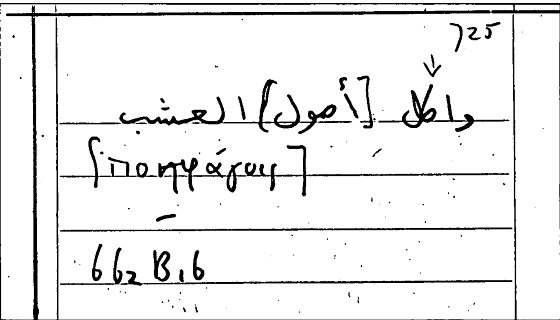 725
↓
واكل [أصول] العشب
[ποηφάγοις]
662 B, 6